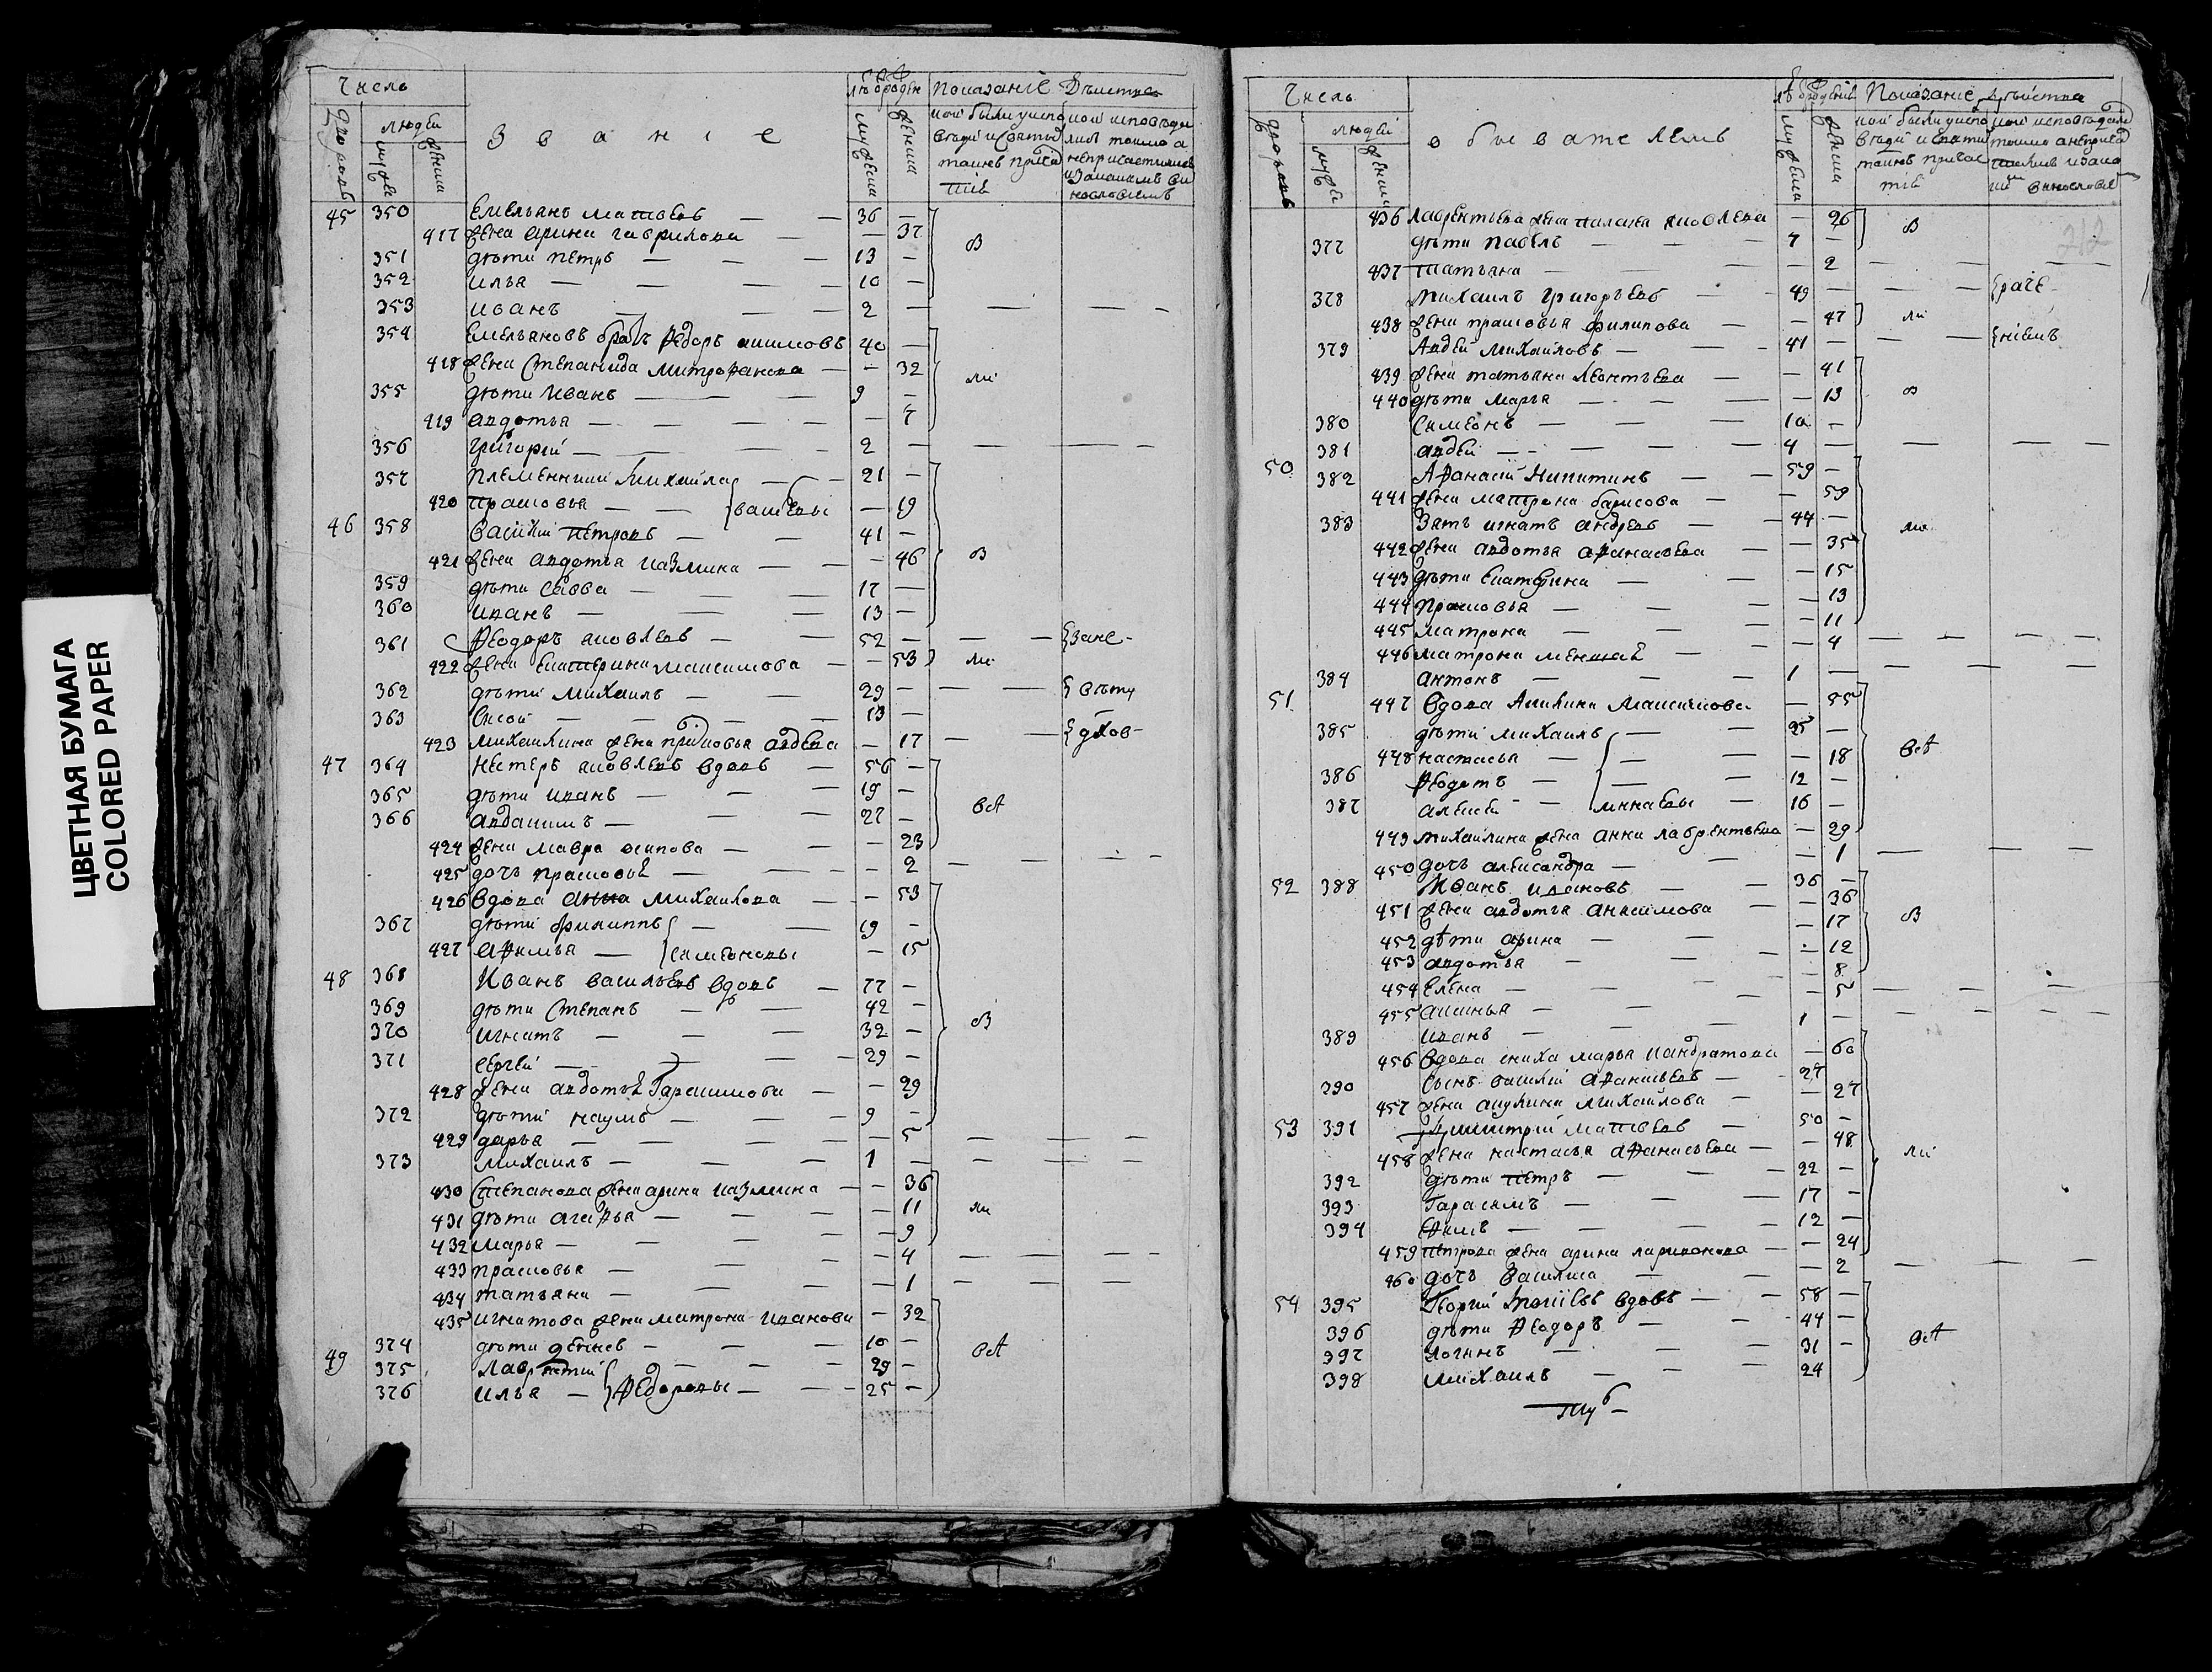 ЦВЕТНАЯ БУМАГА
COLORED PAPER
Число
дворовъ
людей
мужеска
женска
Званіе
мужеска
женска
Показаніе Дѣйства
кои были у исповѣди и святыхъ таинъ причастіѣ
45 350 Емельянъ Матвѣевъ — — 36 —
417 жена Арина Гаврилова — — 37 В
351 дѣти Петръ — — — 13 —
352 Илья — — — — 10 —
353 Иванъ — — — 2 — — — — —
354 Емельяновъ братъ Ѳедоръ Акимовъ 40 —
418 жена Степанида Митрофанова — — 32
355 дѣти Иванъ — — — 9 —
419 Авдотья — — — — — 7
356 Григорій — — — 2 — — — — —
357 племянники Михайла — — 21 —
420 Прасковья — — Васильевы — 19
46 358 Василій Петровъ — — 41 —
421 жена Авдотья Казмина — — — 46 В
359 дѣти Савва — — — 17 —
360 Иванъ — — — 13 —
361 Ѳеодоръ Яковлевъ — — 52 — — — зане-
422 жена Екатерина Максимова — — 53
362 дѣти Михаилъ — — 29 — — — бытіу
363 Сисой — — — — — 13 —
423 Михайлина жена Прасковья Авдеева — 17 — — дхов-
47 364 Нестеръ Яковлевъ вдовъ — 56 —
365 дѣти Иванъ — — — 19 —
366 Авдакимъ — — — 27 — всѣ
424 жена Мавра Осипова — — — 23
425 дочь Прасковья — — — — 2 — — — —
426 вдова Анна Михайлова — — 53
367 дѣти Филиппъ — — 19 —
427 Афимья — Симеоновы — 15
48 368 Иванъ Васильевъ вдовъ — 77 —
369 дѣти Степанъ — — — 42 —
370 Игнатъ — — — 32 — В
371 Сергѣй — — — — 29 —
428 жена Авдотья Гарасимова — — 29
372 дѣти Наумъ — — — 9 —
429 Дарья — — — — — 5 — — — —
373 Михаилъ — — — 1 — — — — —
430 Степанова жена Арина Казмина — — 36
431 дѣти Агафья — — — — 11
432 Марья — — — — — 9
433 Прасковья — — — — 4 — — — —
434 Татьяна — — — — 1 — — —
435 Игнатова жена Матрона Иванова — 32
374 дѣти Денисъ — — — 10 — всѣ
49 375 Лаврентій — — — 29 —
376 Илья — Ѳедоровы — — — 25 —
Число
дворовъ
людей
мужеска
женска
обывателѣмъ
мужеска
женска
Показаніе Дѣйства
436 Лаврентьева жена Палага Яковлева — 26
377 дѣти Павелъ — — — 7 — В
437 Татьяна — — — — 2 — — — —
378 Михаилъ Григорьевъ — — 49 — — —
438 жена Прасковья Филипова — — 47
379 Авдей Михайловъ — — 41 — — — ніемъ
439 жена Татьяна Леонтьева — — 41
440 дѣти Марья — — — — 13 В
380 Симеонъ — — — 10 —
381 Авдей — — — — 4 — — — —
50 382 Афанасій Никитинъ — — 59 —
441 жена Матрона Барисова — — 59
383 Зять Игнатъ Андреевъ — — 44 —
442 жена Авдотья Афанасьева — — 35
443 дѣти Екатерина — — — 15
444 Прасковья — — — — 13
445 Матрона — — — — 11
446 Матрона меншая — — — 4 — — — —
384 Антонъ — — — 1 — — — — —
51 447 Вдова Акилина Максимова — 55
385 дѣти Михаилъ — — 25 —
448 Настасья — — — — 18 всѣ
386 Ѳедотъ — — — 12 —
387 Алексей — — Минаевы — 16 —
449 Михайлина жена Анна Лаврентьева — 29
450 дочь Александра — — — 1 — — —
52 388 Иванъ Ивановъ — — 36 —
451 жена Авдотья Анисимова — — 36
452 дѣти Арина — — — 17 В
453 Авдотья — — — 12
454 Елена — — — — 8
455 Аксинья — — — — 5 — — — —
389 Иванъ — — — — 1 — — — — —
456 Вдова Марья Кандратова — 60
390 Сынъ Василій Афанасьевъ — — 27
457 жена Акулина Михайлова — — 27
53 391 Димитрій Матвѣевъ — 50 —
458 жена Настасья Афанасьева — — 48
392 дѣти Петръ — — — 22 —
393 Гарасимъ — — — 17 —
394 Ефимъ — — — — 12 —
459 Петрова жена Арина Ларивонова — — 24
460 дочь Василиса — — — 2 — — —
54 395 Георгій вдовъ — — 58 —
396 дѣти Ѳеодоръ — — 44 —
397 Логинъ — — — 31 — всѣ
398 Михаилъ — — 24